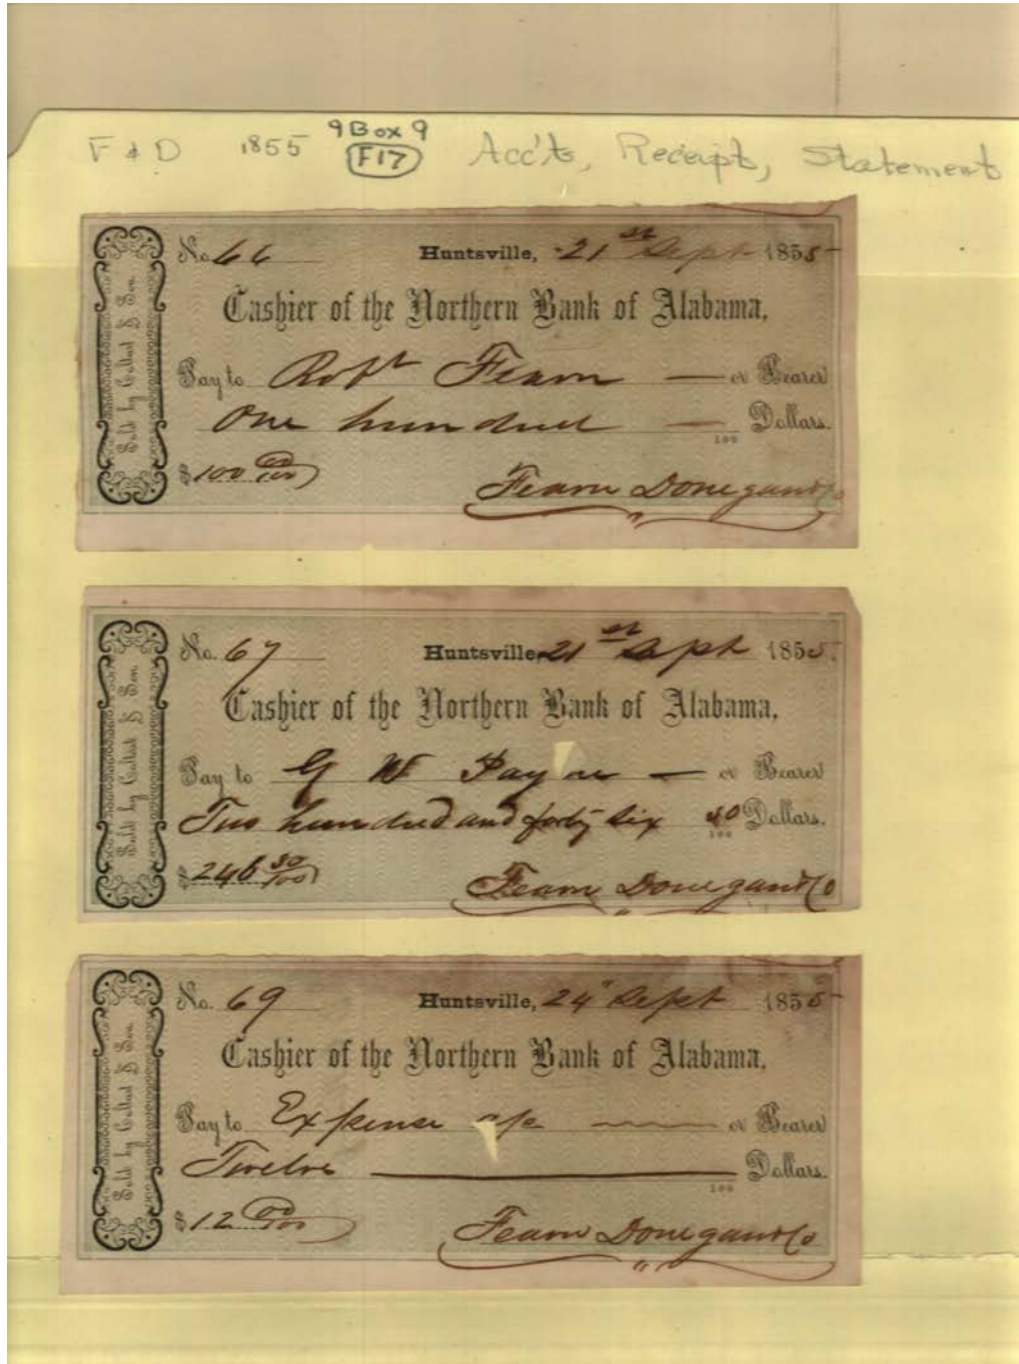 9 Box 9
F & D 1855 F17 Acc'ts, Receipt, Statement
No. 66 Huntsville, 21st Sept 1855
Cashier of the Northern Bank of Alabama,
Pay to Robt Fearn — or Bearer
One hundred — Dollars.
100
$100 00/100
Fearn Donegan & Co
Sold by Coltart & Son.
No. 67 Huntsville, 21st Sept 1855.
Cashier of the Northern Bank of Alabama,
Pay to G W Payne — or Bearer
Two hundred and forty six 30/100 Dollars.
$246 30/100
Fearn Donegan & Co
Sold by Coltart & Son.
No. 69 Huntsville, 24" Sept 1855
Cashier of the Northern Bank of Alabama,
Pay to Expense a/c — or Bearer
Twelve — Dollars.
100
$12 00/100
Fearn Donegan & Co
Sold by Coltart & Son.